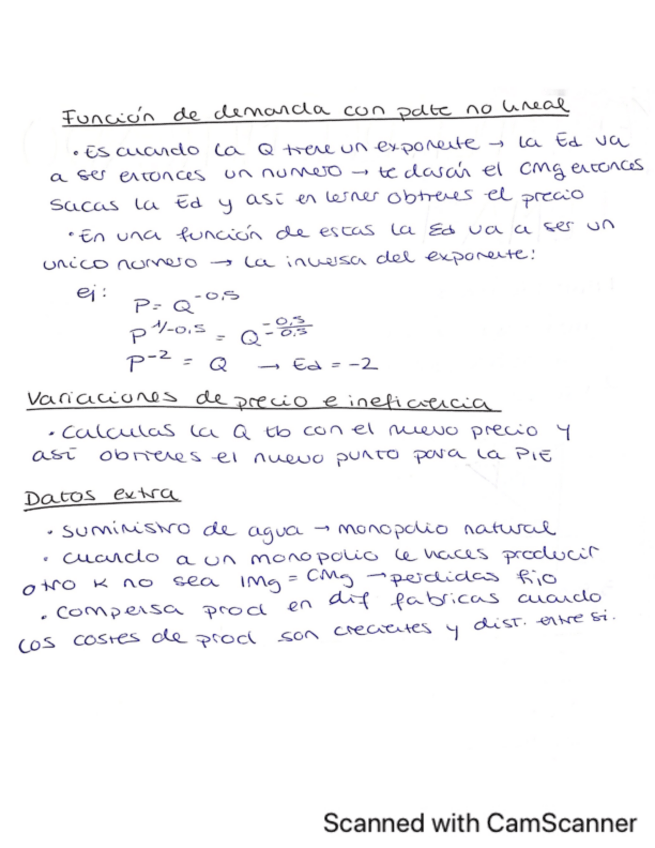 Función de demanda con pdte no lineal
· Es cuando la Q tiene un exponente → la Ed va
a ser entonces un numero → te darán el CMg entonces
sacas la Ed y así en lerner obtienes el precio
· En una función de estas la Ed va a ser un
unico numero → la inversa del exponente:
ej:
P = Q^-0,5
P^1/-0,5 = Q^-0,5/-0,5
P^-2 = Q → Ed = -2
Variaciones de precio e ineficiencia
· Calculas la Q tb con el nuevo precio y
así obtienes el nuevo punto para la PIE
Datos extra
· suministro de agua → monopolio natural
· cuando a un monopolio le haces producir
otro K no sea IMg = CMg → perdidas fijo
· Compensa prod en dif fabricas cuando
los costes de prod son crecientes y dist. entre si.
Scanned with CamScanner